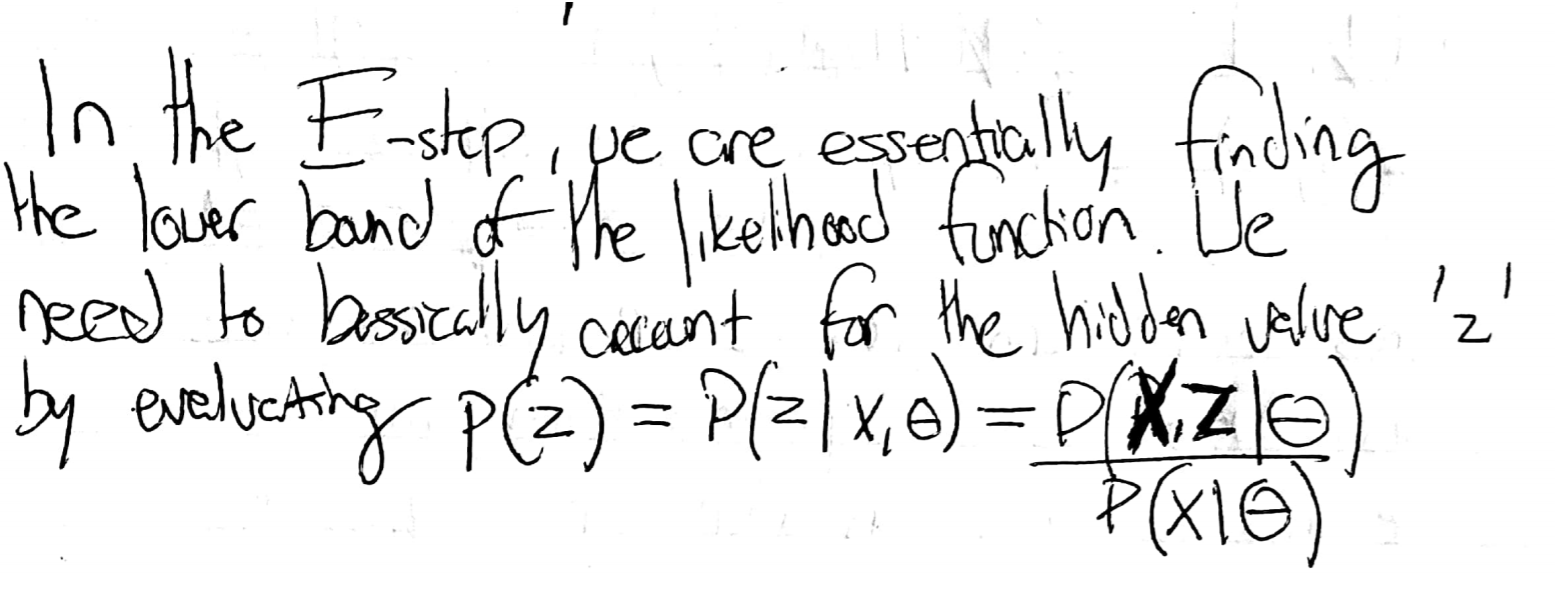 In the E-step, we are essentially finding
the lower bound of the likelihood function. We
need to bassically account for the hidden value 'z'
by evaluating P(z) = P(z|x,θ) = P(X,Z|θ)
P(X|θ)